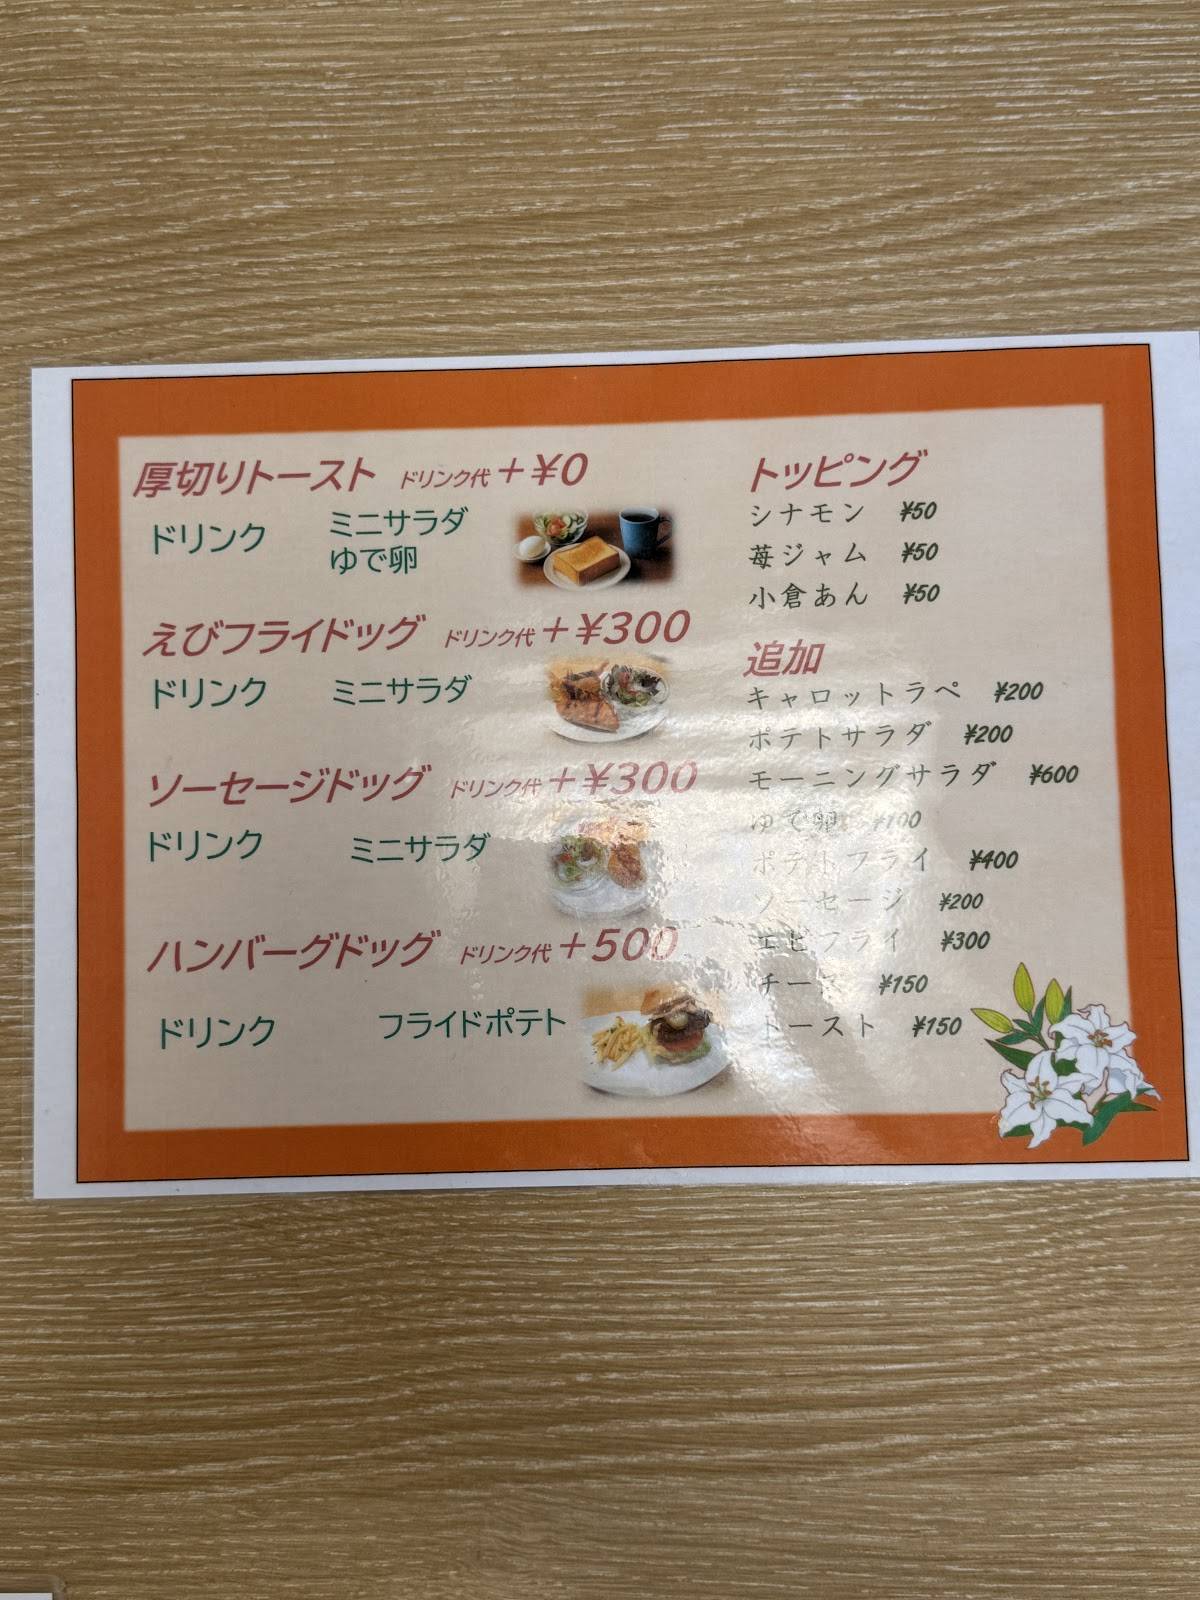 厚切りトースト ドリンク代+¥0
ドリンク ミニサラダ
ゆで卵
えびフライドッグ ドリンク代+¥300
ドリンク ミニサラダ
ソーセージドッグ ドリンク代+¥300
ドリンク ミニサラダ
ハンバーグドッグ ドリンク代+500
ドリンク フライドポテト
トッピング
シナモン ¥50
苺ジャム ¥50
小倉あん ¥50
追加
キャロットラペ ¥200
ポテトサラダ ¥200
モーニングサラダ ¥600
ゆで卵 ¥100
ポテトフライ ¥400
ソーセージ ¥200
エビフライ ¥300
チーズ ¥150
トースト ¥150